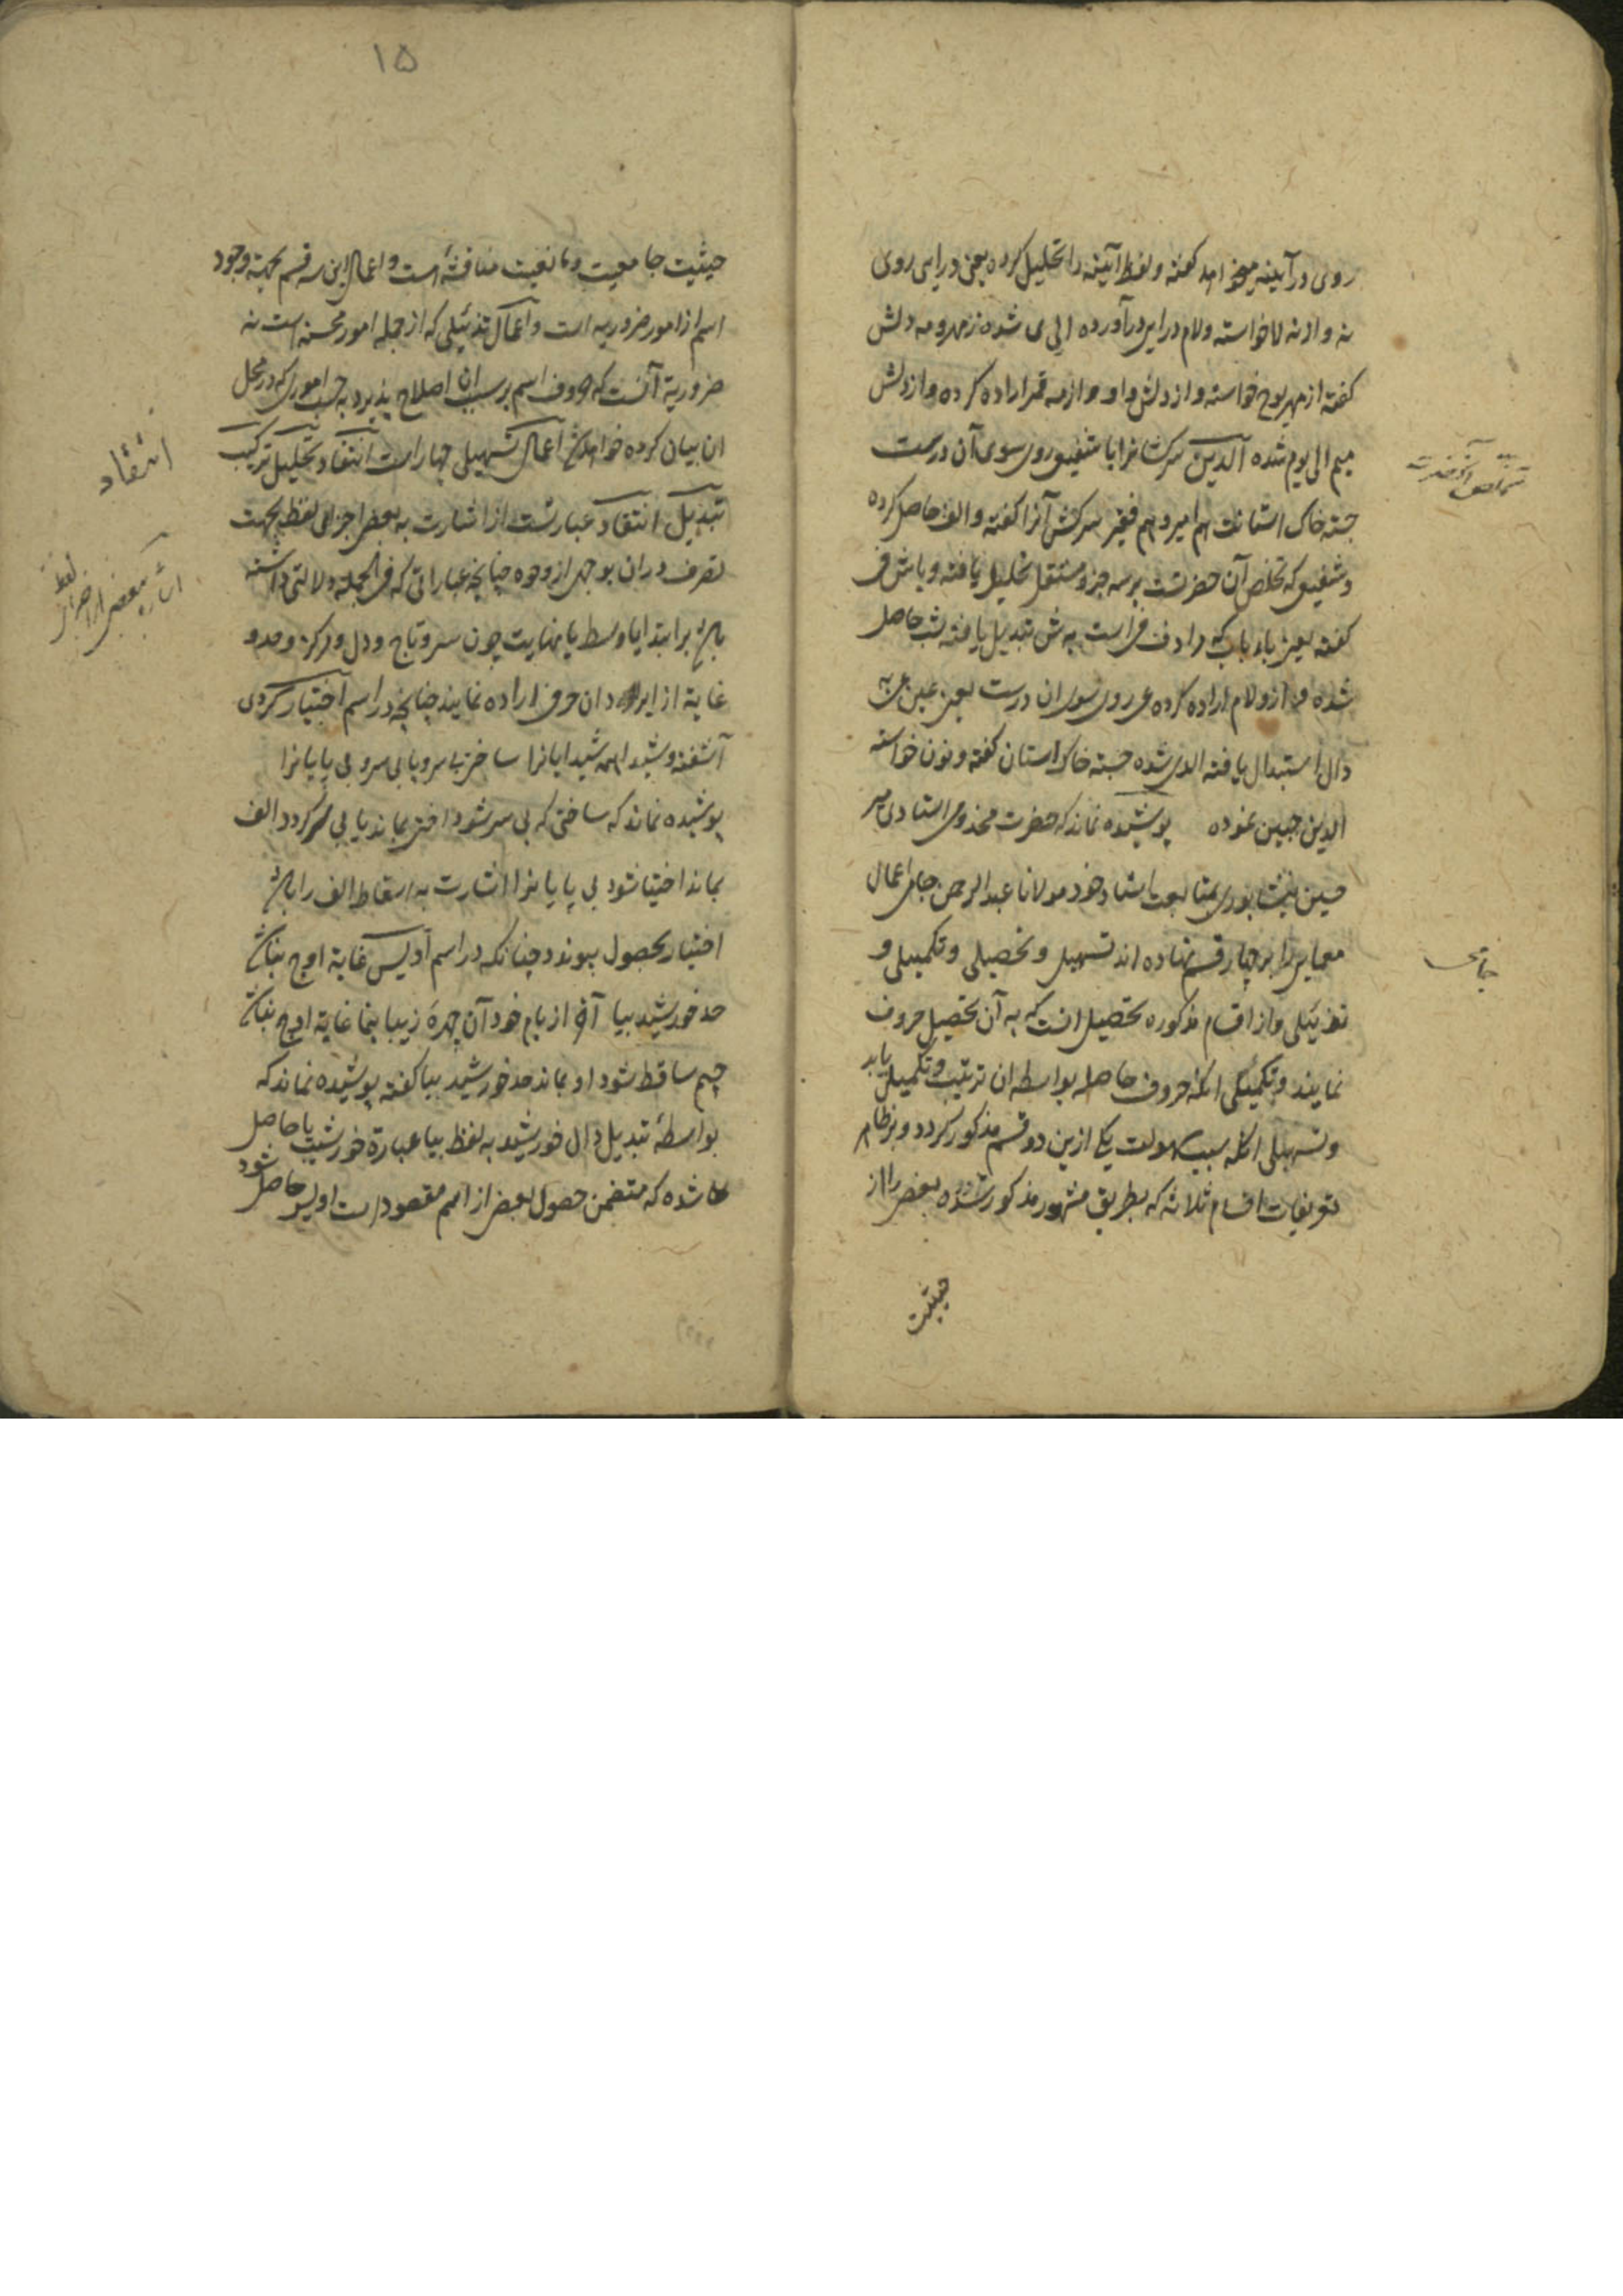 روی در آینه میخواهد گفته و لفظ آیینه را تحلیل کرده یعنی در ایی روی
نه و از نه لا خواسته و لام در ایی درآورده الی شده ز مهر و مه دلش
گفته از مهر یوح خواسته و از دلش واو و از مه قمر اراده کرده و از دلش
میم الی یوم شده الدین سرکشانرا با شفیق روی سوی آن درست
جسته خاک استانت هم امیر و هم فقیر سرکش آنرا گفته و الف حاصل کرده
و شفیق که تخلص آن حضرتست بر سه جزو مستقل تحلیل یافته و با ش ف
گفته یعنی باء باب که مرادف در است به ش تبدیل یافته شب حاصل
شده و از و لام اراده کرده ی روی سوی ان درست یعنی عین عربیه
دال استبدال یافته الدی شده جسته خاک استان گفته و نون خواسته
الدین جبین نموده پوشیده نماند که حضرت مخدومی استادی میر
حسین نیشابوری بمتابعت استاد خود مولانا عبد الرحمن جامی اعمال
معمایی را بر چهار قسم نهاده اند تسهیلی و تحصیلی و تکمیلی و
تذییلی و از اقسام مذکوره تحصیلی انست که به آن تحصیل حروف
نمایند و تکمیلی انکه حروف حاصله بواسطه ان ترتیب و تکمیل یابد
و تسهیلی انکه سبب سهولت یکی ازین دو قسم مذکور کردد و بر ظاهر
تعریفات اقسام ثلاثه که بطریق مشهور مذکور شده بعضی را از
حیثیت
تخلص آنحضرت
جامی
۱۵
حیثیت جامعیت و مانعیت مناقشه است و اعمال این سه قسم بجهة وجود
اسم از امور ضروریه است و اعمال تذییلی که از جمله امور محسنه است نه
ضروریة آنست که حروف اسم بر سبب ان اصلاح پذیرد به حسب اموری که در محل
ان بیان کرده خواهد شد اعمال تسهیلی چهار است انتقاد تحلیل ترکیب
تبدیل انتقاد عبارتست از اشارت به بعضی اجزای لفظ بجهت
تصرف در ان بوجهی از وجوه چنانچه عباراتی که فی الجمله دلالتی داشته
باشد بر ابتدا یا وسط یا نهایت چون سر و تاج و دل و مرکز و حد و
غایة از ایراد ان حرف اراده نمایند چنانچه در اسم اختیار کردی
آشفته و شیدا همه شیدایانرا ساختی بی سر و پا بی سر و بی پایانرا
پوشیده نماند که ساختی که بی سر شود اختی بماند یا بی سر کردد الف
بماند اختیا شود بی پایانرا اشارت به اسقاط الف را باشد
اختیار بحصول پیوندد چنانکه در اسم اویس غایة اوج بنا ش
حد خورشید بیا آخر از بام خود آن چهرهٔ زیبا بنما غایة اوج بنا ش
جیم ساقط شود او بماند حد خورشید بیا گفته پوشیده نماند که
بواسطهٔ تبدیل دال خورشید به لفظ بیا عبارة خورشیبیا حاصل
شده که متضمن حصول بعضی از اسم مقصود است اویس حاصل شود
انتقاد
اشاره ببعضی از اجزای لفظ